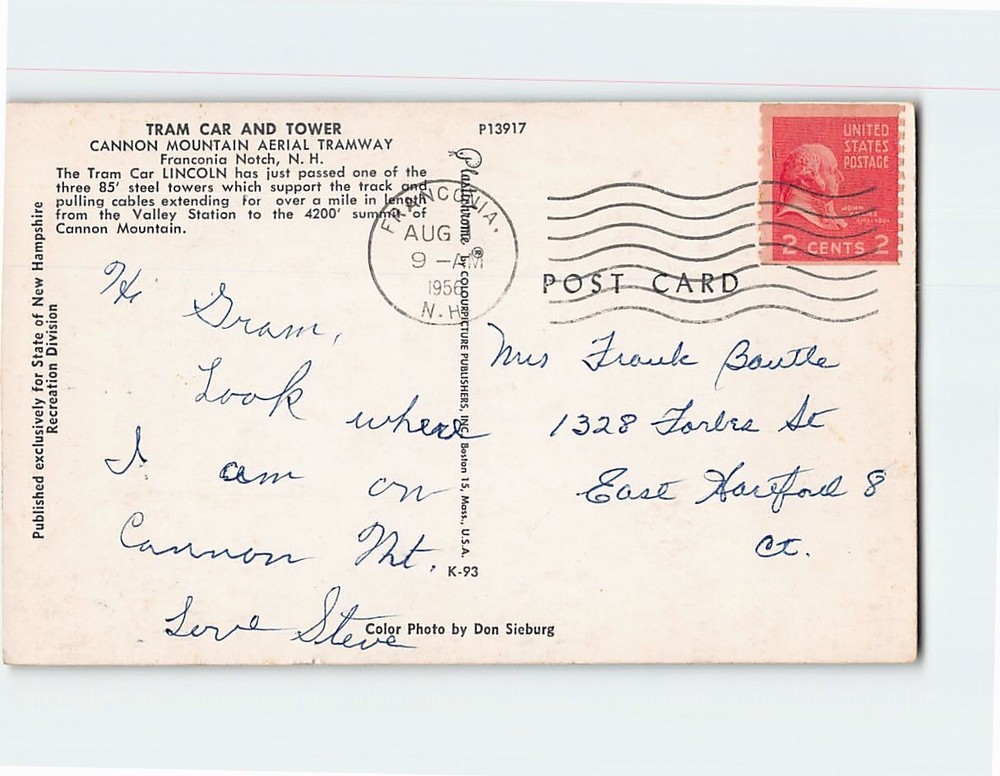 TRAM CAR AND TOWER
CANNON MOUNTAIN AERIAL TRAMWAY
Franconia Notch, N. H.
The Tram Car LINCOLN has just passed one of the
three 85' steel towers which support the track and
pulling cables extending for over a mile in length
from the Valley Station to the 4200' summit of
Cannon Mountain.
P13917
Published exclusively for State of New Hampshire
Recreation Division
Plastichrome ® by COLOURPICTURE PUBLISHERS, INC., Boston 15, Mass., U.S.A.
K-93
FRANCONIA,
AUG
9 - AM
1956
N.H.
UNITED
STATES
POSTAGE
JOHN
2 CENTS 2
POST CARD
Hi
Gram,
Look where
I am on
Cannon Mt.
Love Steve
Mrs Frank Boutle
1328 Forbes St
East Hartford 8
Ct.
Color Photo by Don Sieburg